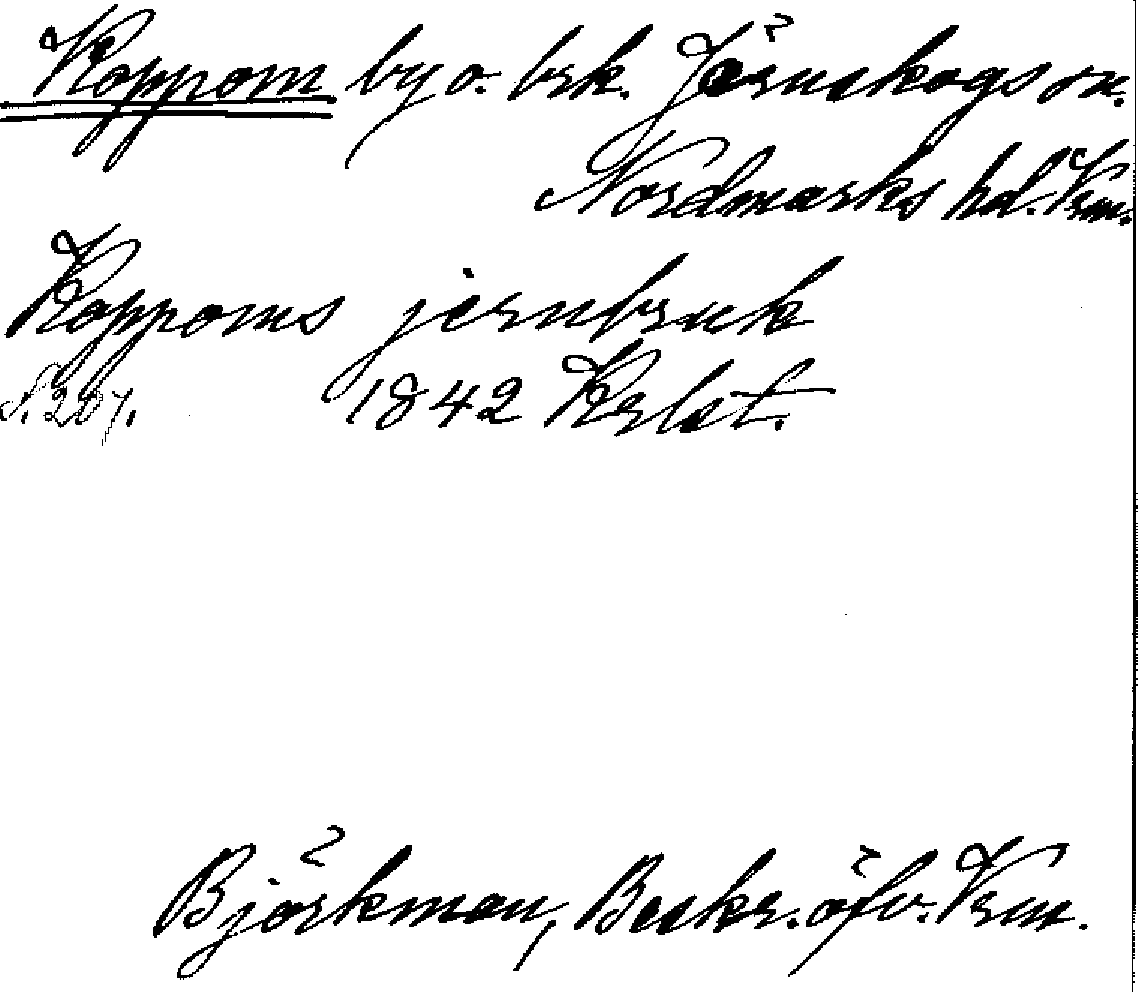 Koppom by o. brk. Järnskogs sn.
Nordmarks hd. Vrm.
Koppoms jernbruk
S. 207. 1842 Krlst.
Björkman, Beskr. öfv. Vrm.